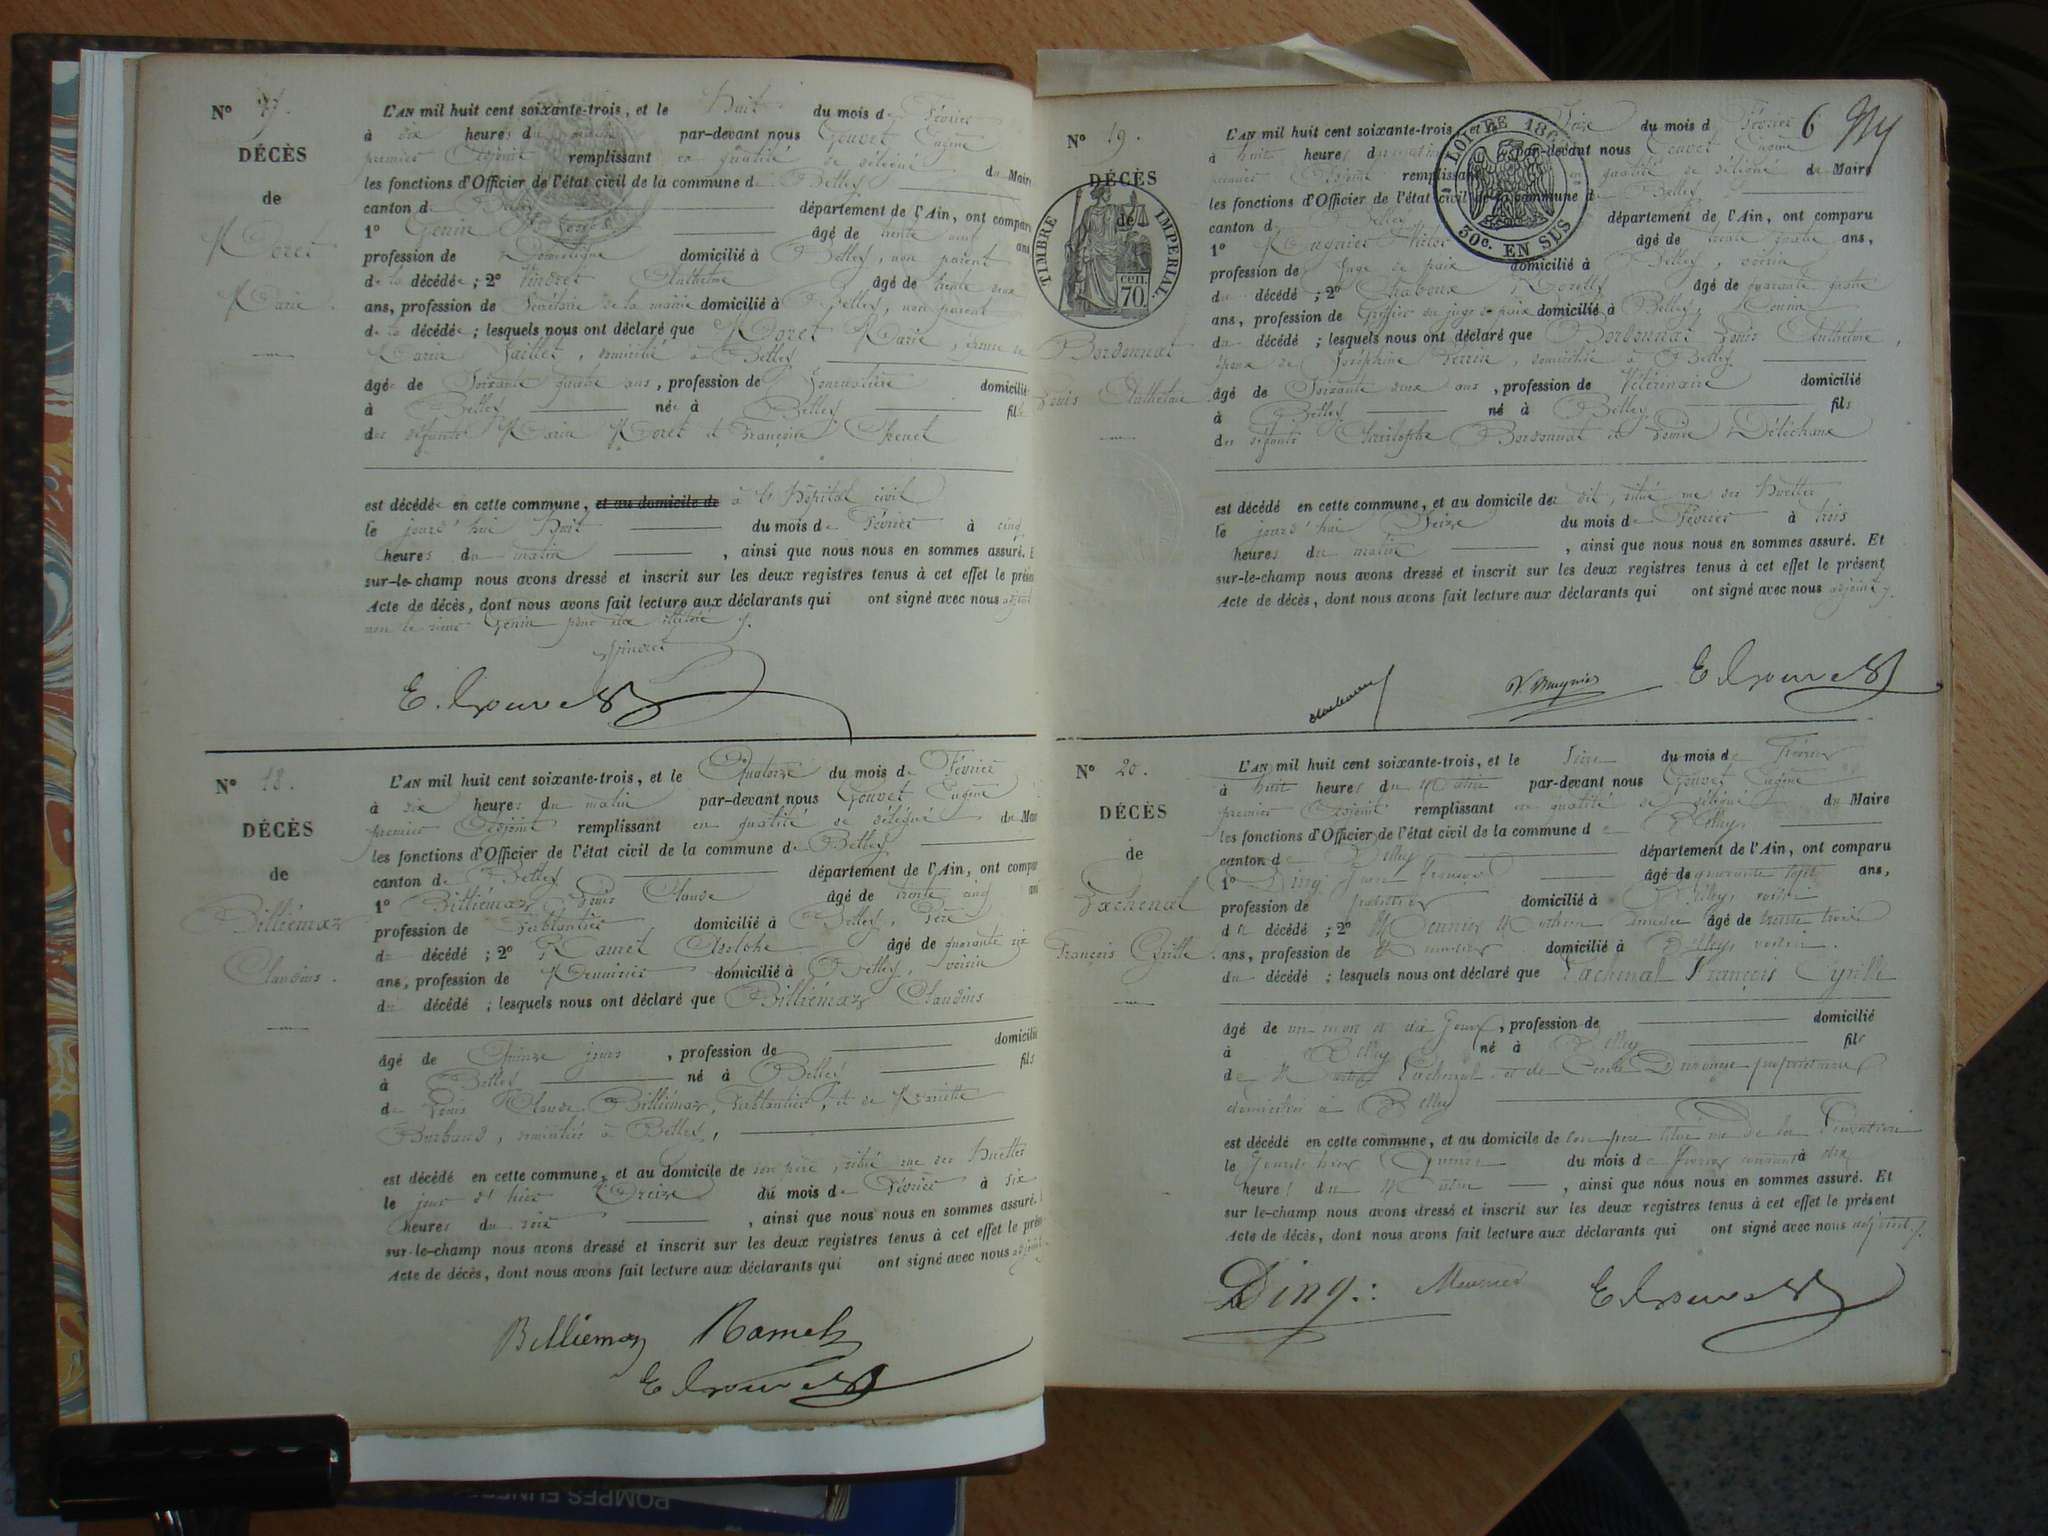 N° 17.
DÉCÈS
de
Moret
Marie
L'AN mil huit cent soixante-trois, et le Huit du mois de Février
à dix heures du matin par-devant nous Gouvet Eugène
premier Adjoint remplissant en qualité de délégué du Maire
les fonctions d'Officier de l'état civil de la commune de Belley
canton de Belley département de l'Ain, ont comparu
1° Genin âgé de trente ans
profession de Domestique domicilié à Belley, non parent
de la décédée ; 2° Vindret Anthelme âgé de trente deux
ans, profession de Secrétaire de la mairie domicilié à Belley, non parent
de la décédée ; lesquels nous ont déclaré que Moret Marie, épouse de
Marin Jaillet, domicilié à Belley
âgée de Soixante quatre ans, profession de Journalière domiciliée
à Belley née à Belley fille
des défunts Marin Moret et Françoise
est décédée en cette commune, et au domicile de à l'Hôpital civil
le jourd'hui Huit du mois de Février à cinq
heures du matin, ainsi que nous nous en sommes assuré. E
sur-le-champ nous avons dressé et inscrit sur les deux registres tenus à cet effet le présen
Acte de décès, dont nous avons fait lecture aux déclarants qui ont signé avec nous adjoint
non le sieur Genin pour être illétré
Vindret
E. Gouvet
N° 18.
DÉCÈS
de
Billiémaz
Claudius.
L'AN mil huit cent soixante-trois, et le Quatorze du mois de Février
à dix heures du matin par-devant nous Gouvet Eugène
premier Adjoint remplissant en qualité de délégué du Mai
les fonctions d'Officier de l'état civil de la commune de Belley
canton de Belley département de l'Ain, ont compar
1° Billiémaz Louis Claude âgé de trente cinq an
profession de Ferblantier domicilié à Belley, Père
du décédé ; 2° Ramel Adolphe âgé de quarante six
ans, profession de Menuisier domicilié à Belley, voisin
du décédé ; lesquels nous ont déclaré que Billiémaz Claudius
âgé de Quinze jours, profession de domicilié
à Belley né à Belley fils
de Louis Claude Billiémaz, Ferblantier, et de Mariette
Burbaud, domiciliés à Belley,
est décédé en cette commune, et au domicile de son père, situé rue des Huettes
le jour d'hier Treize du mois de Février à six
heures du soir, ainsi que nous nous en sommes assuré.
sur-le-champ nous avons dressé et inscrit sur les deux registres tenus à cet effet le prés
Acte de décès, dont nous avons fait lecture aux déclarants qui ont signé avec nous adjoint
Billiemaz Ramel
E Gouvet
6
N° 19.
DÉCÈS
de
TIMBRE IMPERIAL.
70. cen.
30c. EN SUS
Bordonnat
Louis Anthelme
L'AN mil huit cent soixante-trois, et le Seize du mois de Février
à huit heures du matin par-devant nous Gouvet Eugène
premier Adjoint remplissant en qualité de délégué du Maire
les fonctions d'Officier de l'état civil de la commune de Belley
canton de Belley département de l'Ain, ont comparu
1° Mugnier Victor âgé de trente quatre ans,
profession de Juge de paix domicilié à Belley, voisin
du décédé ; 2° Chaboux âgé de quarante quatre
ans, profession de Greffier du juge de paix domicilié à Belley,
du décédé ; lesquels nous ont déclaré que Bordonnat Louis Anthelme,
époux de Joséphine Perrin, domicilié à Belley
âgé de Soixante deux ans, profession de Vétérinaire domicilié
à Belley né à Belley fils
des défunts Christophe Bordonnat et Louise Déléchaux
est décédé en cette commune, et au domicile de dit, situé rue des Huettes
le jourd'hui Seize du mois de Février à trois
heures du matin, ainsi que nous nous en sommes assuré. Et
sur-le-champ nous avons dressé et inscrit sur les deux registres tenus à cet effet le présent
Acte de décès, dont nous avons fait lecture aux déclarants qui ont signé avec nous adjoint
V. Mugnier E Gouvet
N° 20.
DÉCÈS
de
Vachenal
François Cyrille.
L'AN mil huit cent soixante-trois, et le Seize du mois de Février
à huit heures du Matin par-devant nous Gouvet Eugène
premier Adjoint remplissant en qualité de délégué du Maire
les fonctions d'Officier de l'état civil de la commune de Belley
canton de Belley département de l'Ain, ont comparu
1° Ding Jean François âgé de quarante sept ans,
profession de domicilié à Belley, voisin
du décédé ; 2° Meunier âgé de trente trois
ans, profession de domicilié à Belley, voisin.
du décédé ; lesquels nous ont déclaré que Vachenal François Cyrille
âgé de un mois et dix Jours, profession de domicilié
à Belley né à Belley fils
de Vachenal et de propriétaires
domiciliés à Belley
est décédé en cette commune, et au domicile de son père situé rue de la
le Jour d'hier Quinze du mois de février courant à dix
heures du Matin, ainsi que nous nous en sommes assuré. Et
sur le-champ nous avons dressé et inscrit sur les deux registres tenus à cet effet le présent
Acte de décès, dont nous avons fait lecture aux déclarants qui ont signé avec nous adjoint
Ding Meunier E Gouvet